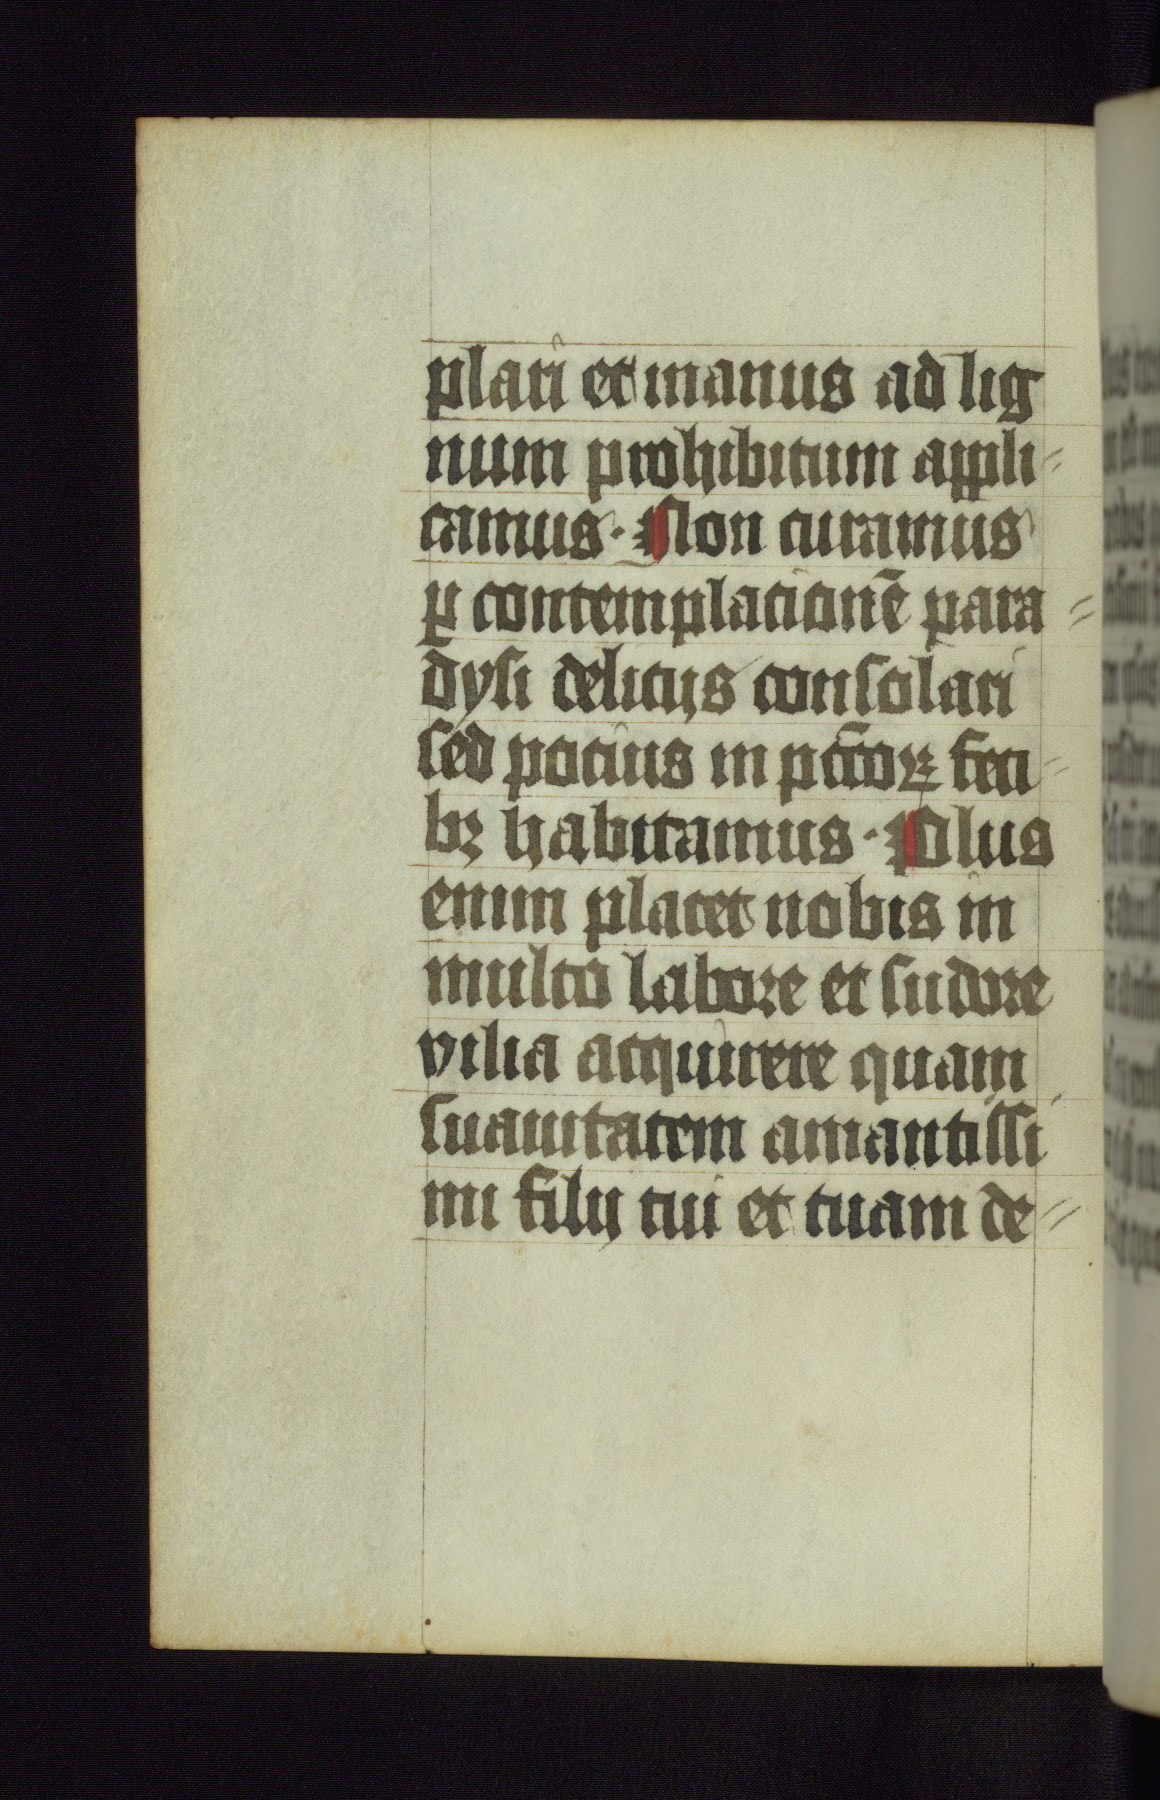 plari et manus ad lig
num prohibitum appli-
camus. Non curamus
ꝑ contemplacionē para-
dysi delicijs consolari
sed pocius in pctōꝝ feti-
bꝫ habitamus. Plus
enim placet nobis in
multo labore et sudore
vilia acquirere quam
suauitatem amantissi-
mi filij tui et tuam de-